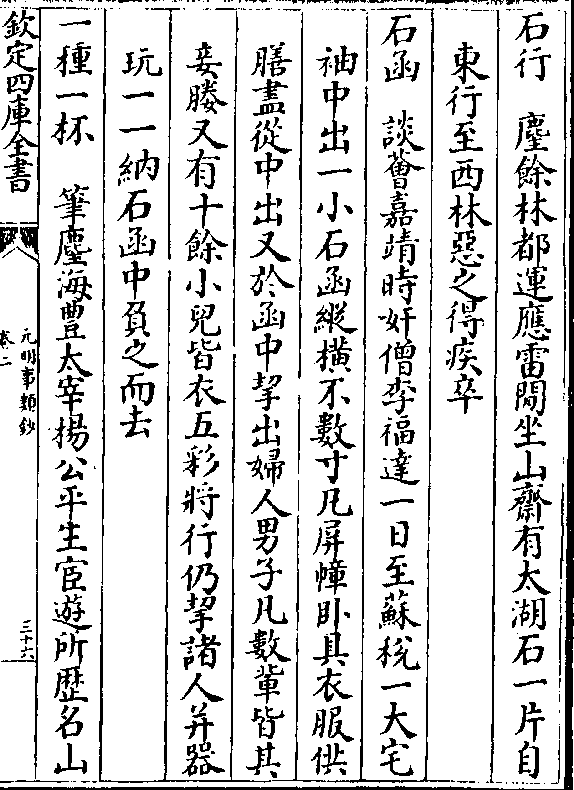 石行　麈餘林都運應雷閒坐山齋有太湖石一片自
東行至西林惡之得疾卒
石函　談薈嘉靖時奸僧李福達一日至蘇稅一大宅
袖中出一小石函縱橫不數寸凡屏幛卧具衣服供
膳盡從中出又於函中挈出婦人男子凡數輩皆其
妾媵又有十餘小兒皆衣五彩將行仍挈諸人并器
玩一一納石函中負之而去
一種一杯　筆麈海豊太宰楊公平生宦遊所歴名山
欽定四庫全書
元明事類鈔
卷二
三十六